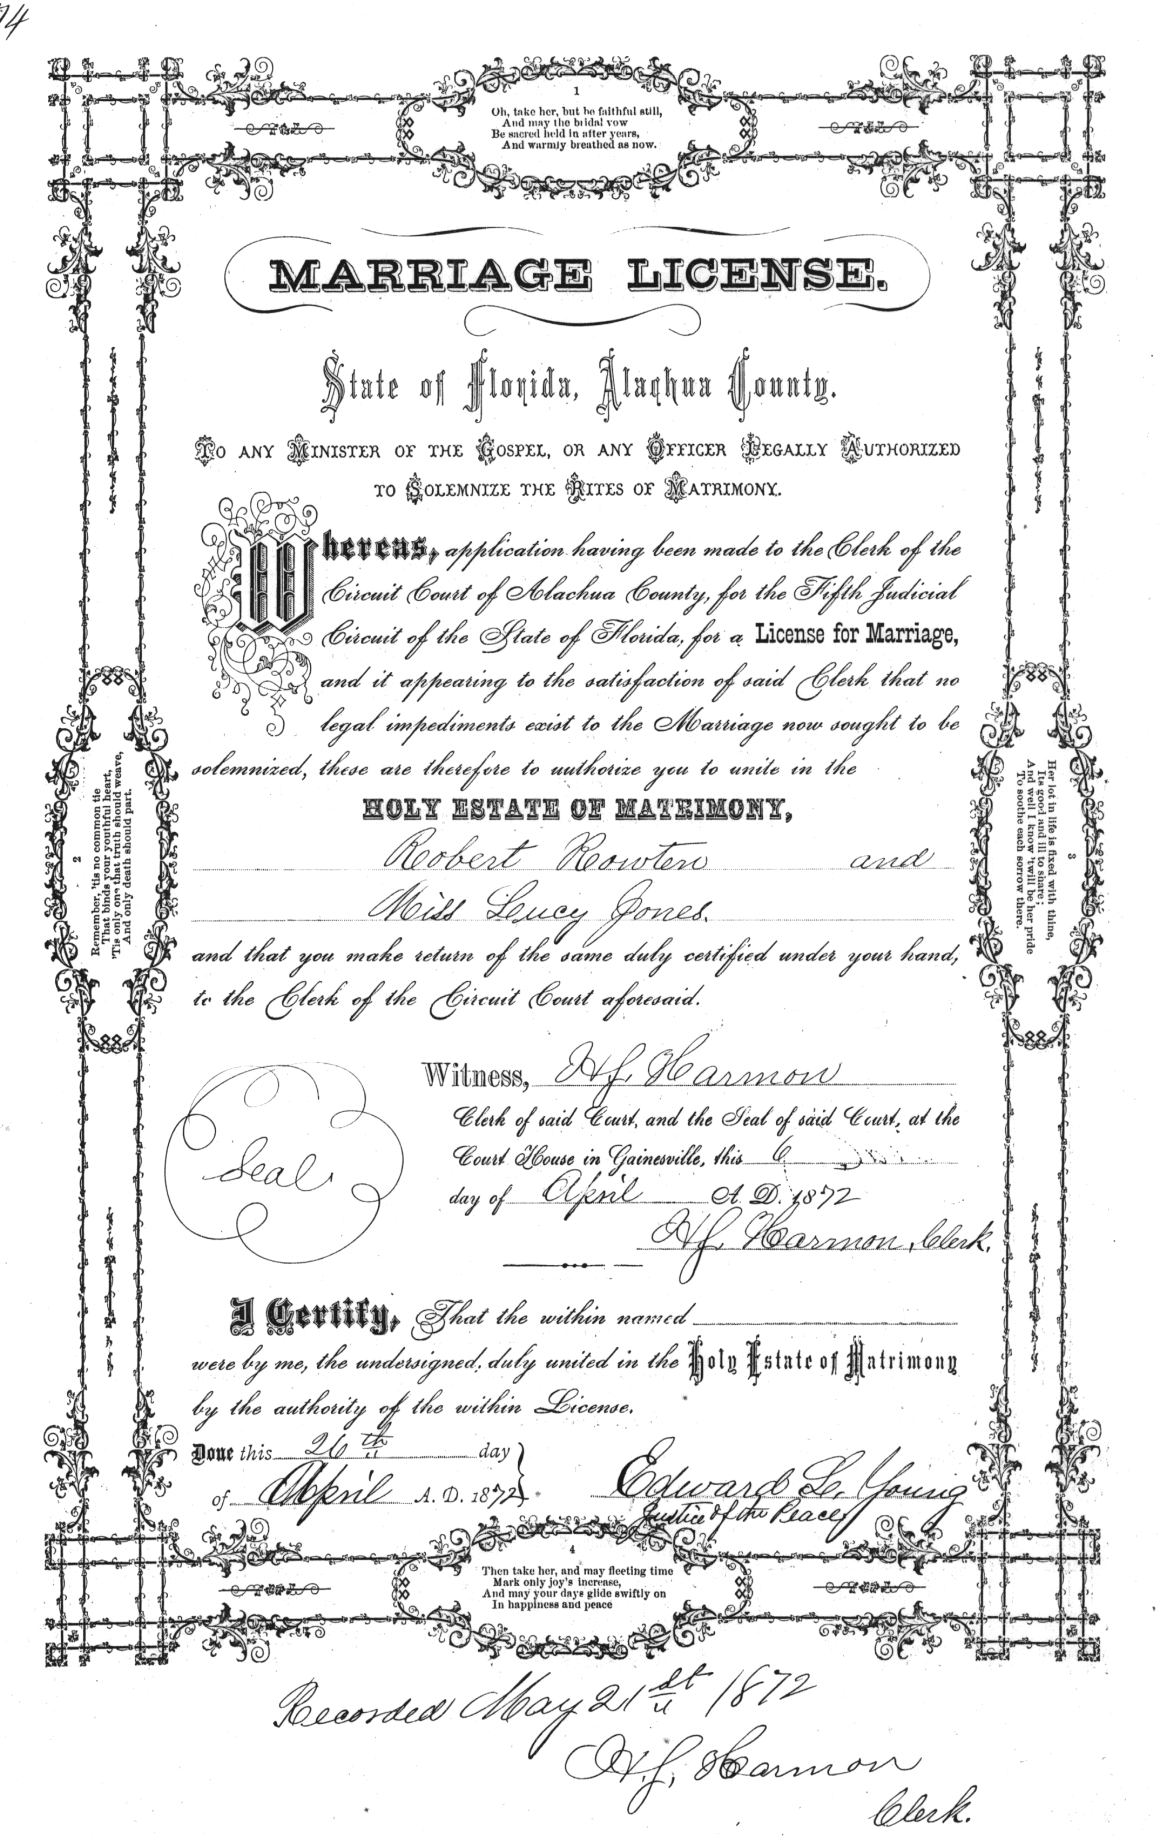 1
Oh, take her, but be faithful still,
And may the bridal vow
Be sacred held in after years,
And warmly breathed as now.
MARRIAGE LICENSE.
State of Florida, Alachua County.
TO ANY MINISTER OF THE GOSPEL, OR ANY OFFICER LEGALLY AUTHORIZED
TO SOLEMNIZE THE RITES OF MATRIMONY.
Whereas, application having been made to the Clerk of the
Circuit Court of Alachua County, for the Fifth Judicial
Circuit of the State of Florida, for a License for Marriage,
and it appearing to the satisfaction of said Clerk that no
legal impediments exist to the Marriage now sought to be
solemnized, these are therefore to authorize you to unite in the
HOLY ESTATE OF MATRIMONY,
Robert Rowten and
Miss Lucy Jones.
and that you make return of the same duly certified under your hand,
to the Clerk of the Circuit Court aforesaid.
2
Remember, 'tis no common tie
That binds your youthful heart,
'Tis only one that truth should weave,
And only death should part.
3
Her lot in life is fixed with thine,
Its good and ill to share;
And well I know 'twill be her pride
To soothe each sorrow there.
Witness, H.J. Harmon
Clerk of said Court, and the Seal of said Court, at the
Court House in Gainesville, this 6
day of April A. D. 1872
Seal
H.J. Harmon, Clerk.
I Certify, That the within named
were by me, the undersigned, duly united in the Holy Estate of Matrimony
by the authority of the within License.
Done this 26th day
of April A. D. 1872
Edward L. Young
Justice of the Peace
4
Then take her, and may fleeting time
Mark only joy's increase,
And may your days glide swiftly on
In happiness and peace
Recorded May 21st 1872
H.J. Harmon
Clerk.